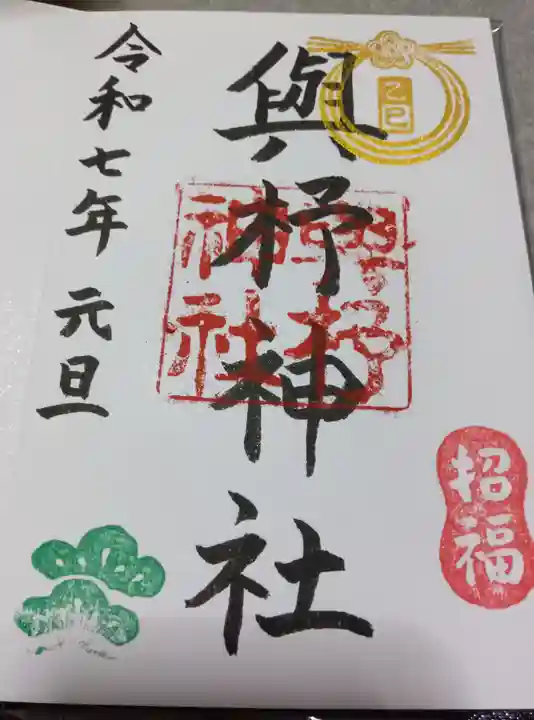 乙巳
招福
與杼神社
與杼神社
令和七年 元旦